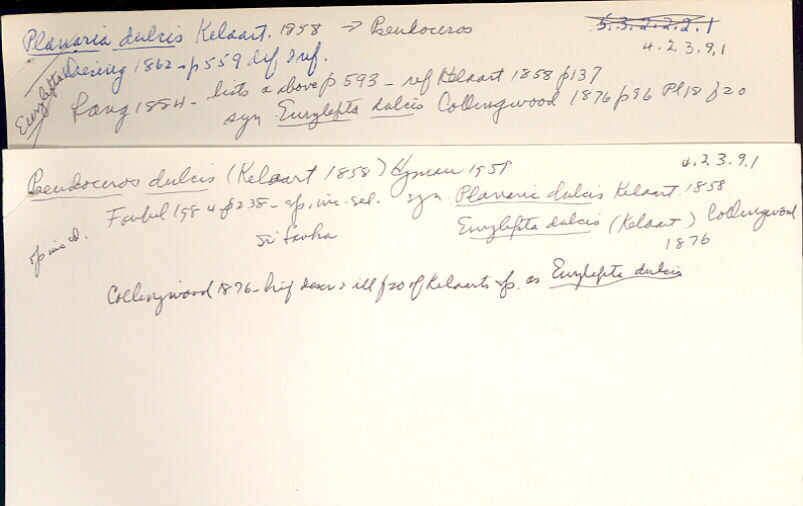 Planaria dulcis Kelaart. 1858 → Pseudoceros
5.3.2.2.2.1
4.2.3.9.1
Eurylepta
Diesing 1862 - p 559 dif & ref.
Lang 1884 - lists a above p 593 - ref Kelaart 1858 p137
syn Eurylepta dulcis Collingwood 1876 p96 Pl18 f20
Pseudoceros dulcis (Kelaart 1858) Hyman 1959
4.2.3.9.1
Faubel 1984 p238 - sp. inc. sed. syn. Planaria dulcis Kelaart. 1858
sp inc sd.
Sri Lanka
Eurylepta dulcis (Kelaart) Collingwood
1876
Collingwood 1876 - brief descr & ill f20 of Kelaarts sp. as Eurylepta dulcis